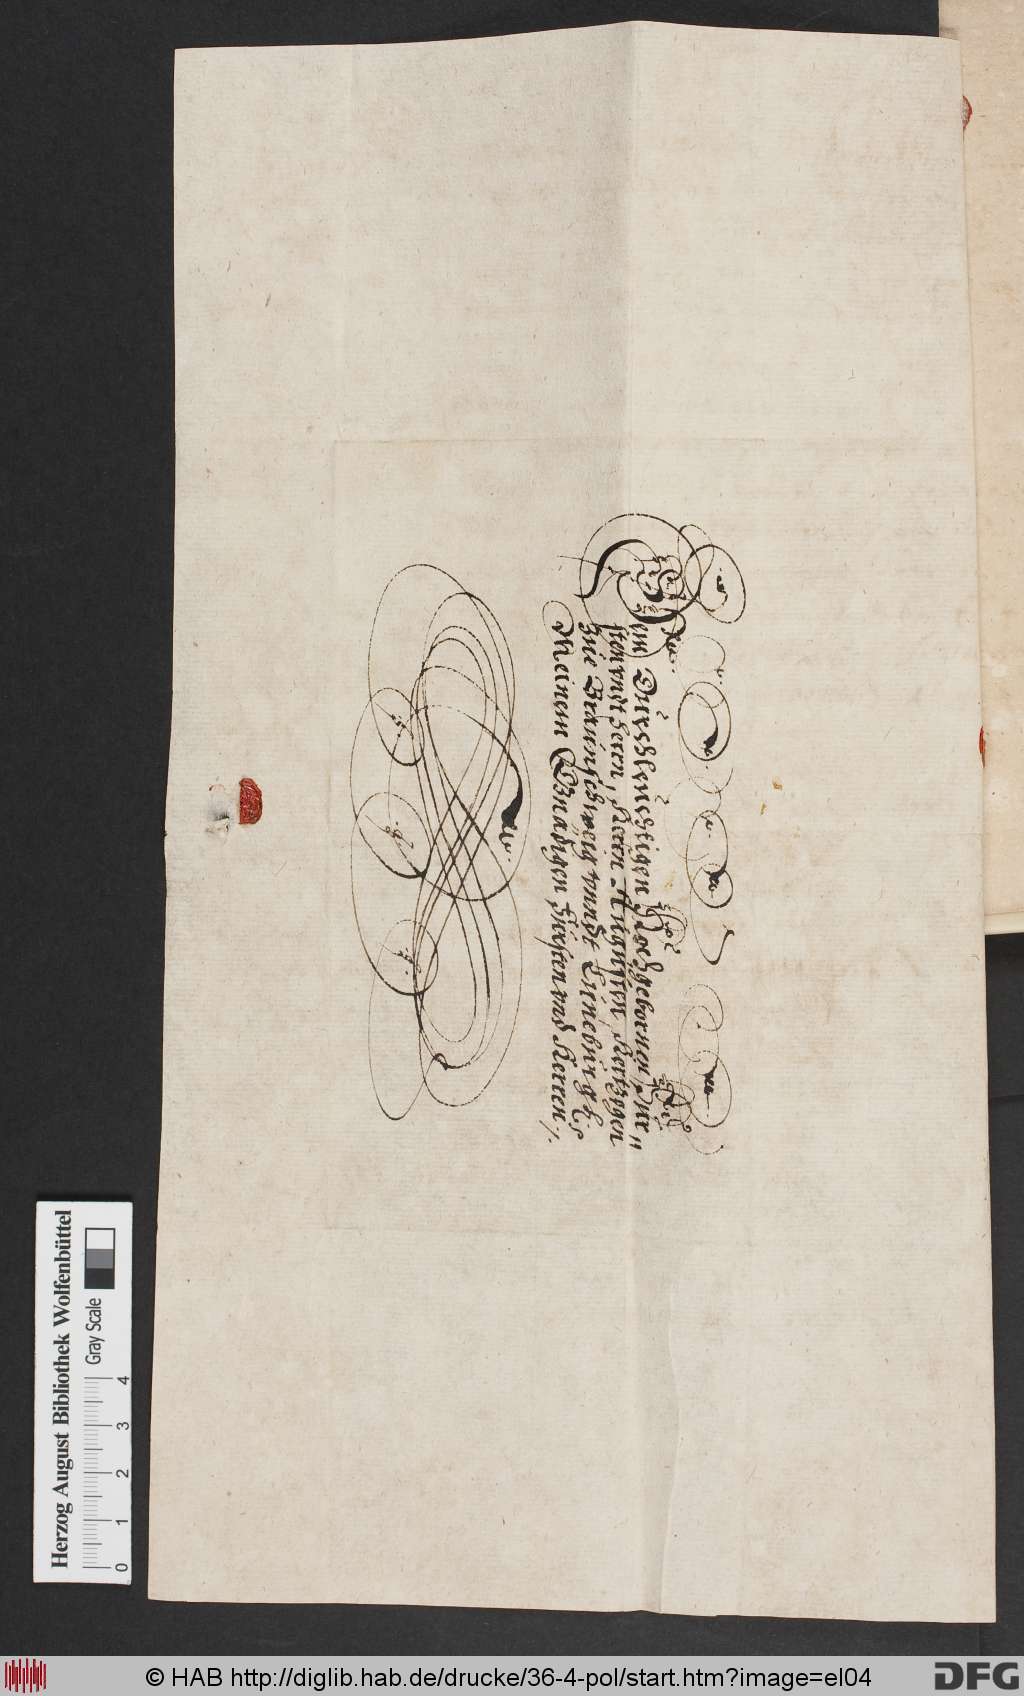 Dem Durchleuchtigen Hochgebornen Fur"
sten vndt Herrn, Herrn Augusten, Hertzogen
zue Braunschweig vnndt Luneburg Es
Meinem Gnädigen Fürsten vnd Herren /.
Herzog August Bibliothek Wolfenbüttel
Gray Scale
0 1 2 3 4
© HAB http://diglib.hab.de/drucke/36-4-pol/start.htm?image=el04
DFG